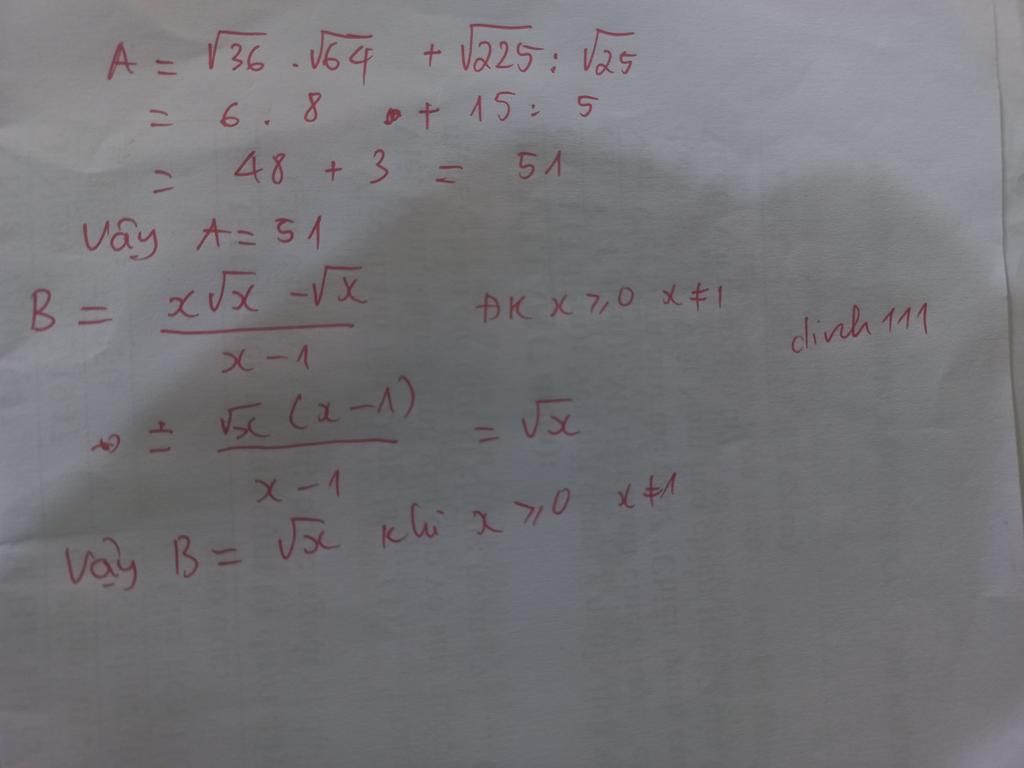 A = √36 . √64 + √225 : √25
= 6 . 8 + 15 : 5
= 48 + 3 = 51
Vậy A = 51
B = (x√x - √x) / (x - 1) ĐK x ≥ 0 x ≠ 1
dinh111
= √x (x - 1) / (x - 1) = √x
Vậy B = √x khi x ≥ 0 x ≠ 1